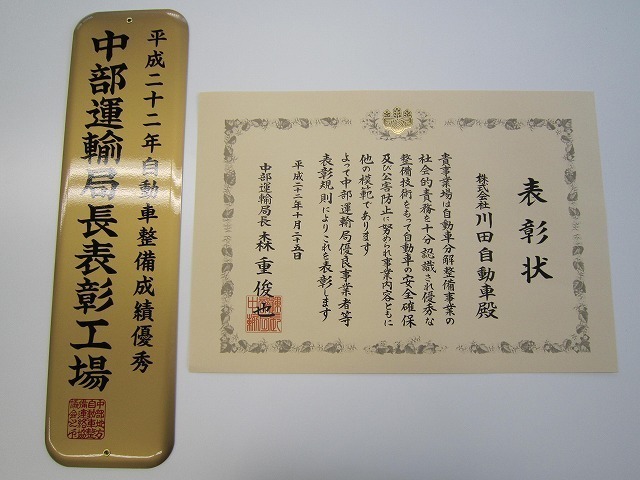 平成二十二年自動車整備成績優秀
中部運輸局長表彰工場
表彰状
株式会社川田自動車殿
貴事業場は自動車分解整備事業の
社会的責務を十分認識され優秀な
整備技術をもって自動車の安全確保
及び公害防止に努められ事業内容ともに
他の模範であります
よって中部運輸局優良事業者等
表彰規則によりこれを表彰します
平成二十二年十月二十五日
中部運輸局長 森重俊也